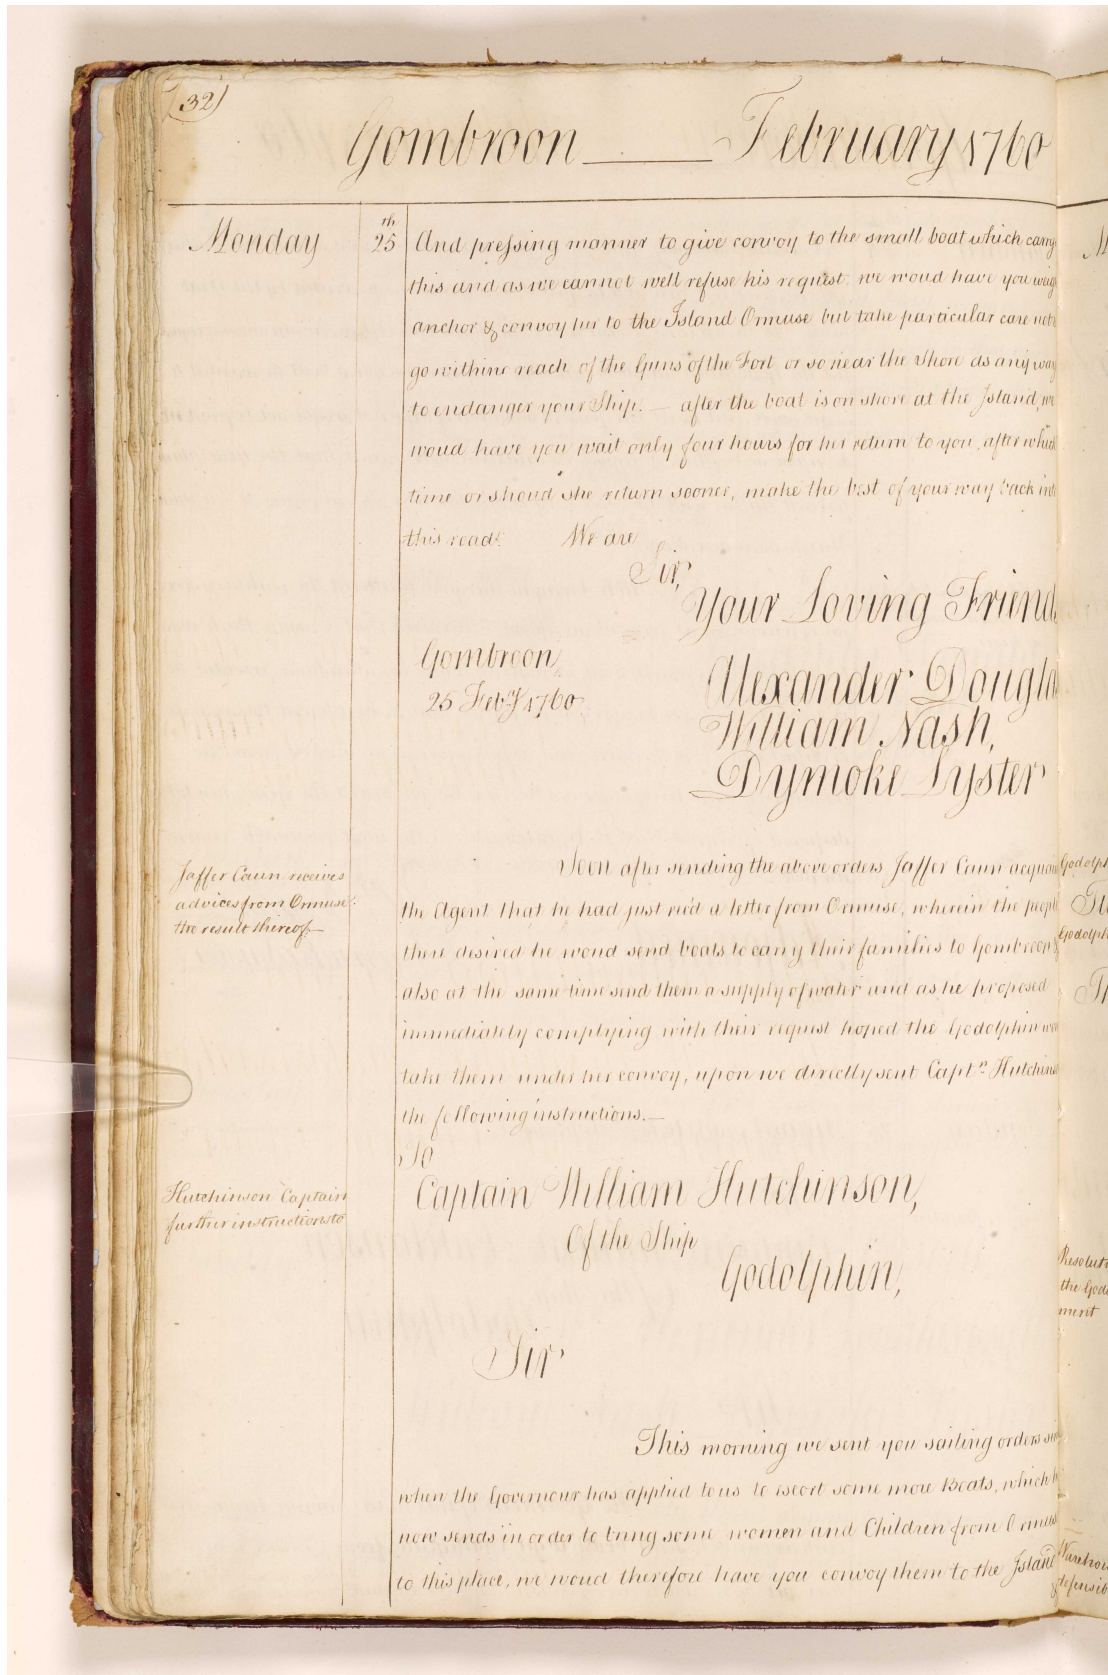 (32)
Gombroon ___ February 1760
Monday 25th And pressing manner to give convoy to the small boat which carry
this and as we cannot well refuse his request, we woud have you weig
anchor & convoy her to the Island Ormuse but take particular care not
go within reach of the Guns of the Fort or so near the Shore as any way
to endanger your Ship. — after the boat is on shore at the Island, we
woud have you wait only four hours for her return to you, after which
time or shoud she return sooner, make the best of your way back into
this road. We are
Sir,
Your Loving Friend
Gombroon,
25 Feb:ry 1760
Alexander Dougla
William Nash,
Dymoke Lyster
Jaffer Caun receives
advices from Ormuse
the result thereof.—
Soon after sending the above orders Jaffer Caun acquai
the Agent that he had just rec'd a letter from Ormuse, wherein the peopl
there desired he woud send boats to carry their families to Gombroon &
also at the same time send them a supply of water and as he proposed
immediately complying with their request hoped the Godolphin wo
take them under her convoy, upon we directly sent Capt.n Hutchins
the following instructions.—
Hutchinson Captain
further instructions to
To
Captain William Hutchinson,
Of the Ship
Godolphin,
Sir
This morning we sent you sailing orders sin
when the Governour has applied to us to escort some more Boats, which h
now sends in order to bring some women and Children from Ormuse
to this place, we woud therefore have you convoy them to the Island
&
Godolph
Godolph
Resoluti
the Godo
ment
Warehou
defensib